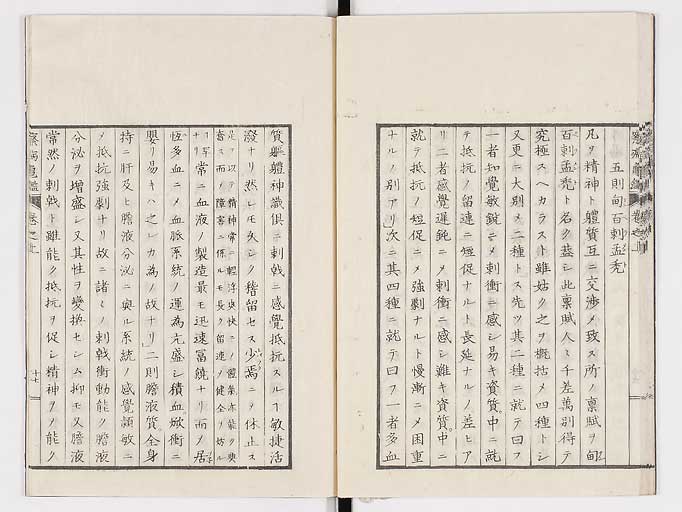 五則甸百刺孟禿
凡ソ精神ト軆質互ニ交渉メ致ス所ノ禀賦ヲ甸
百刺孟禿ト名ク葢シ此禀賦人々千差萬別得テ
究極スヘカラスト雖姑ク之ヲ概括メ四種トシ
又更ニ大別メ二種トス先ツ其二種ニ就テ曰フ
一者知覺敏鋭ニメ刺衝ニ感シ易キ資質中ニ就
テ抵抗ノ留連ニ短促ナルト長延ナルノ差ヒア
リ二者感覺遲鈍ニメ刺衝ニ感シ難キ資質中ニ
就テ抵抗ノ短促ニメ強劇ナルト慢漸ニメ困重
ナルノ別アリ次ニ其四種ニ就テ曰フ一者多血
質軆神識俱ニ刺戟ニ感覺抵抗スルヿ敏捷活
潑ナリ然レモ久シク稽留セス少焉ニメ休止ス
足ヲ以テ精神常ニ輕浮爽快ニメ體氣亦能ク爽
メ而メ障害ニ係ルモ長ク留連メ健全ヲ妨ル
常ニ血液ノ製造最モ迅速富饒ナリ而メ居
恆多血ニメ血脈系統ノ運為亢盛シ積血焮衝ニ
嬰リ易キハ之レカ為ノ故ナリ二則膽液質全身
持ニ肝及ヒ膽液分泌ニ與ル系統ノ感覺頴敏ニ
メ抵抗強劇ナリ故ニ諸々ノ刺戟衝動能ク膽液
分泌ヲ增盛シ又其性ヲ變換セシム抑モ又膽液
常然ノ刺戟ト雖能ク抵抗ヲ促シ精神ヲメ能ク
卷之
十七